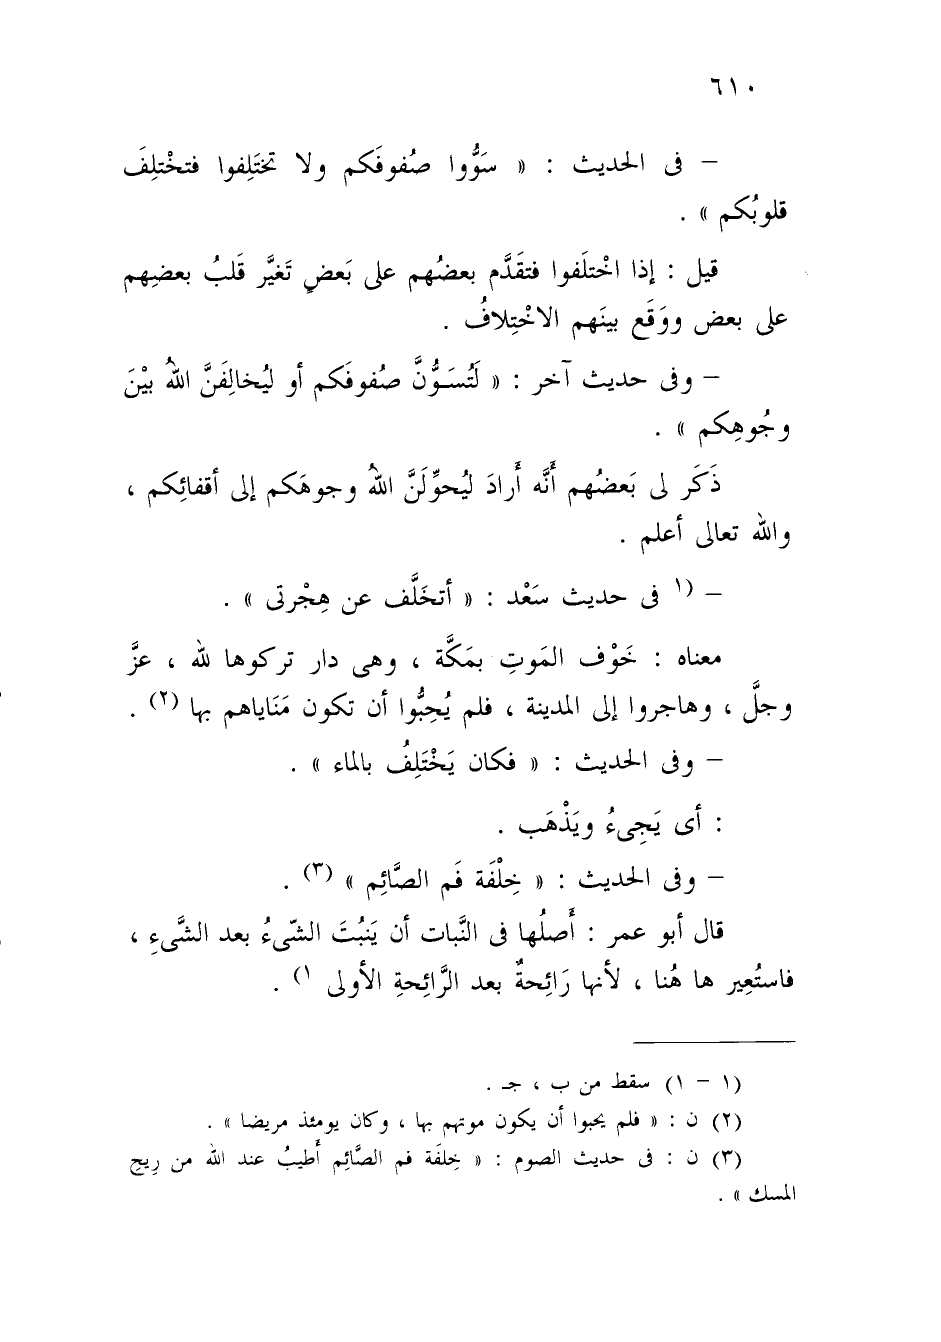 ٦١٠
– فى الحديث : « سَوُّوا صُفوفَكم ولا تختَلِفوا فتخْتلِفَ
قلوبُكم » .
قيل : إذا اخْتلَفوا فتقَدَّم بعضُهم على بَعضٍ تَغيَّر قَلبُ بعضِهم
على بعض ووَقَع بينَهم الاخْتِلافُ .
– وفى حديث آخر : « لَتُسَوُّنَّ صُفوفَكم أو ليُخالِفَنَّ اللهُ بيْنَ
وجُوهِكم » .
ذَكَر لى بَعضُهم أَنَّه أَرادَ ليُحوِّلَنَّ اللهُ وجوهَكم إلى أقفائِكم ،
والله تعالى أعلم .
– (١ فى حديث سَعْد : « أتخَلَّف عن هِجْرتى » .
معناه : خَوْف المَوتِ بمَكَّة ، وهى دار تركوها لله ، عزَّ
وجلَّ ، وهاجروا إلى المدينة ، فلم يُحِبُّوا أن تكون مَنَاياهم بها (٢) .
– وفى الحديث : « فكان يَخْتَلِفُ بالماء » .
: أى يَجِىءُ ويَذْهَب .
– وفى الحديث : « خِلْفَة فَم الصَّائِم » (٣) .
قال أبو عمر : أَصلُها فى النَّبات أن يَنبُتَ الشّىءُ بعد الشَّىءِ ،
فاستُعِير ها هُنا ، لأنها رَائِحةٌ بعد الرَّائِحةِ الأولى ١) .
(١ – ١) سقط من ب ، جـ .
(٢) ن : « فلم يحبوا أن يكون موتهم بها ، وكان يومئذ مريضا » .
(٣) ن : فى حديث الصوم : « خِلفَة فم الصَّائِم أَطيبُ عند الله من رِيحِ
المسك » .